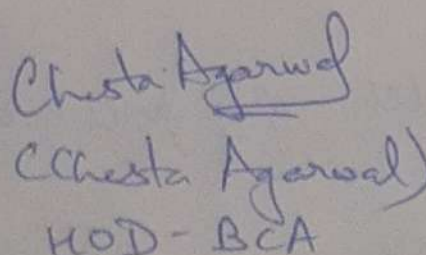 Chesta Agarwal
(Chesta Agarwal)
HOD - BCA